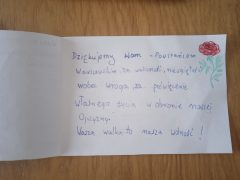 Dziękujemy Wam - Powstańcom
Warszawskim, za wolność,
wobec wroga, za poświęcenie
własnego życia w obronie naszej
Ojczyzny.
Wasza walka to nasza wolność!